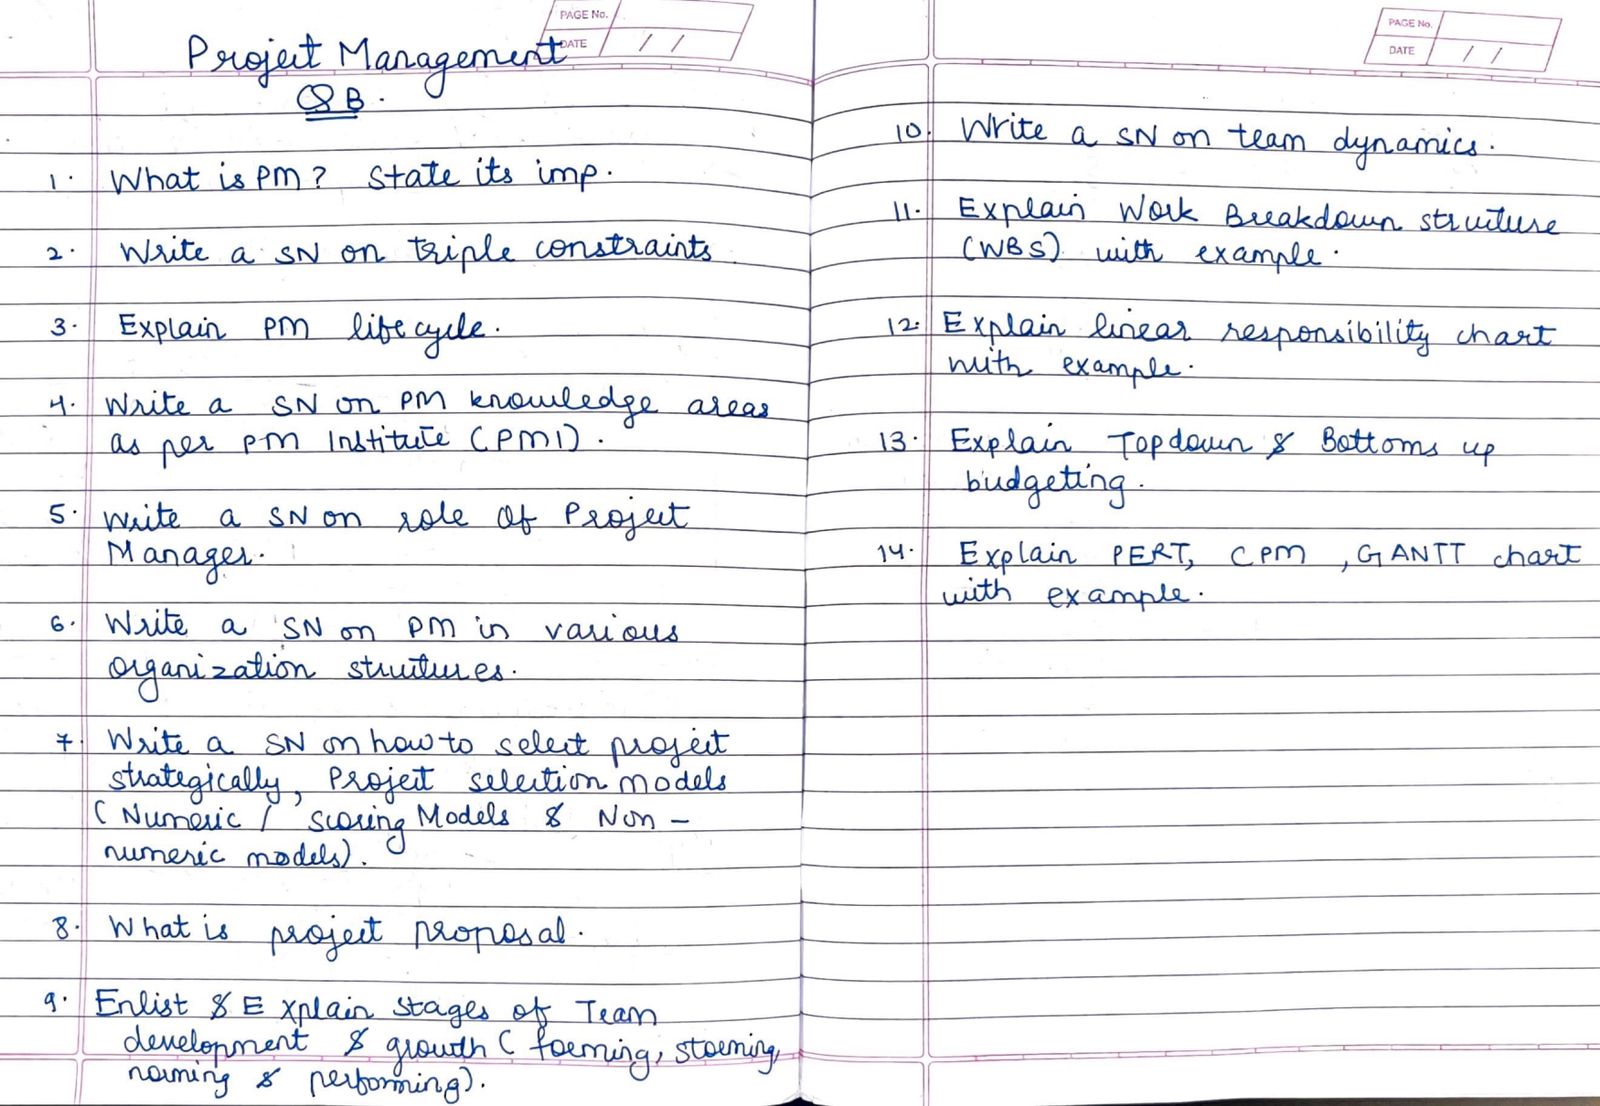 PAGE No.
DATE / /
Project Management
QB.
1. What is PM? State its imp.
2. Write a SN on triple constraints
3. Explain PM life cycle.
4. Write a SN on PM knowledge areas
as per PM Institute (PMI).
5. Write a SN on role of Project
Manager.
6. Write a SN on PM in various
organization structures.
7. Write a SN on how to select project
strategically, Project selection models
(Numeric / scoring Models & Non-
numeric models).
8. What is project proposal.
9. Enlist & Explain Stages of Team
development & growth (forming, storming,
norming & performing).
PAGE No.
DATE / /
10. Write a SN on team dynamics.
11. Explain Work Breakdown structure
(WBS) with example.
12. Explain linear responsibility chart
with example.
13. Explain Topdown & Bottoms up
budgeting.
14. Explain PERT, CPM, GANTT chart
with example.